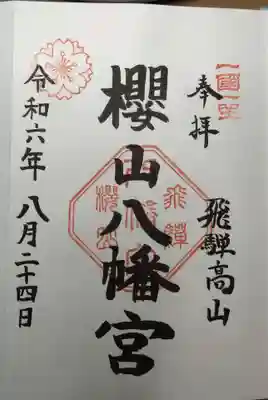 奉拝
飛騨高山
櫻山八幡宮
令和六年 八月二十四日